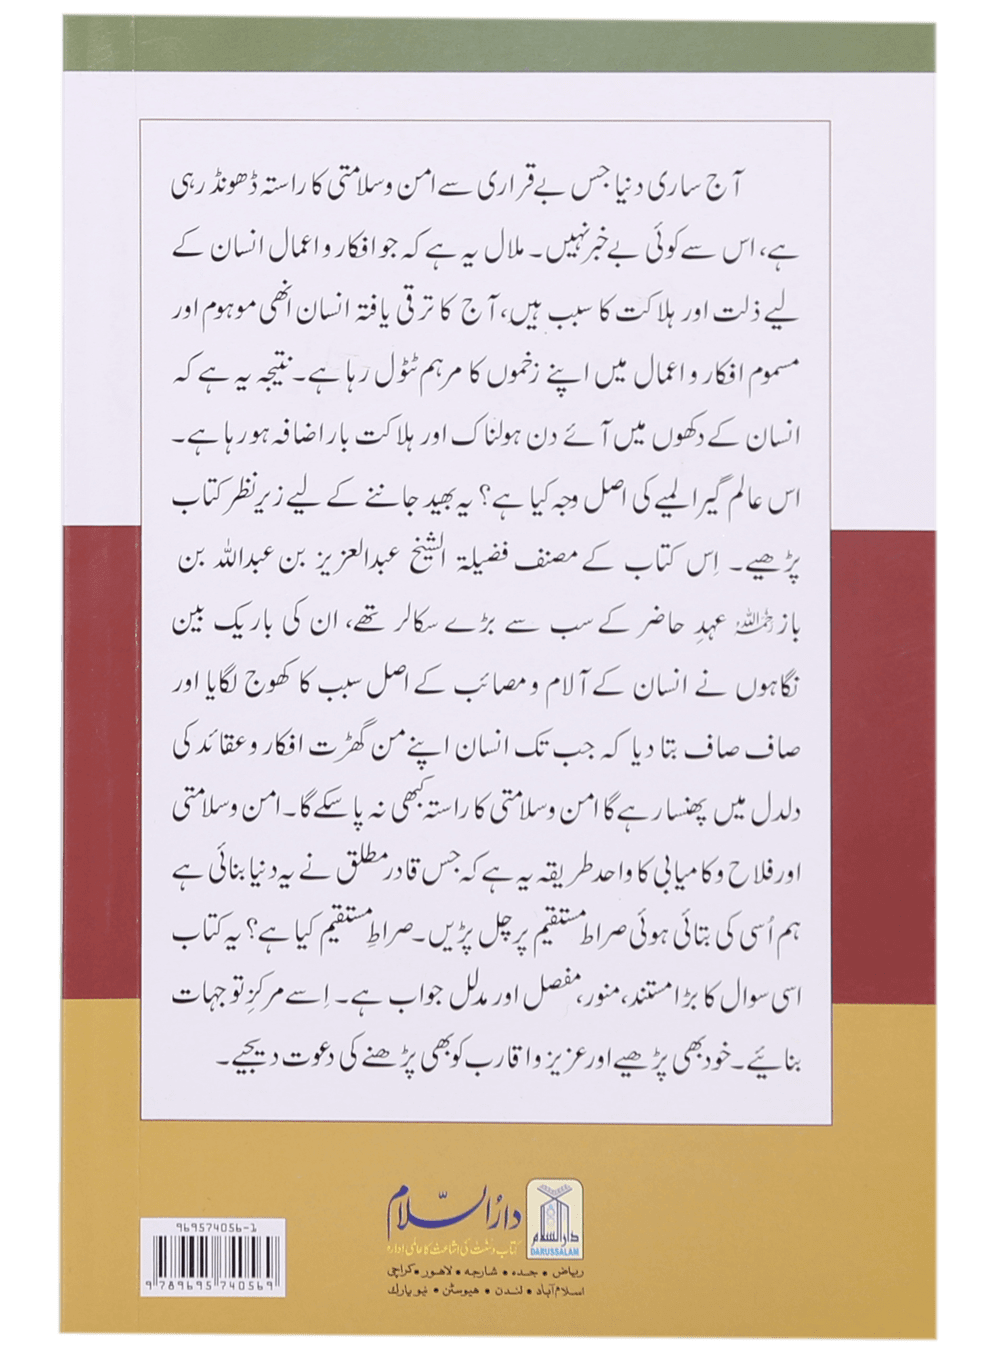 آج ساری دنیا جس بے قراری سے امن وسلامتی کا راستہ ڈھونڈ رہی
ہے، اس سے کوئی بے خبر نہیں۔ ملال یہ ہے کہ جو افکار و اعمال انسان کے
لیے ذلت اور ہلاکت کا سبب ہیں، آج کا ترقی یافتہ انسان انھی موہوم اور
مسموم افکار و اعمال میں اپنے زخموں کا مرہم ٹٹول رہا ہے۔ نتیجہ یہ ہے کہ
انسان کے دکھوں میں آئے دن ہولناک اور ہلاکت بار اضافہ ہو رہا ہے۔
اس عالم گیر المیے کی اصل وجہ کیا ہے؟ یہ بھید جاننے کے لیے زیر نظر کتاب
پڑھیے۔ اِس کتاب کے مصنف فضیلۃ الشیخ عبدالعزیز بن عبداللہ بن
باز رحمہ اللہ عہدِ حاضر کے سب سے بڑے سکالر تھے، ان کی باریک بین
نگاہوں نے انسان کے آلام و مصائب کے اصل سبب کا کھوج لگایا اور
صاف صاف بتا دیا کہ جب تک انسان اپنے من گھڑت افکار و عقائد کی
دلدل میں پھنسا رہے گا امن وسلامتی کا راستہ کبھی نہ پا سکے گا۔ امن وسلامتی
اور فلاح و کامیابی کا واحد طریقہ یہ ہے کہ جس قادر مطلق نے یہ دنیا بنائی ہے
ہم اُسی کی بتائی ہوئی صراط مستقیم پر چل پڑیں۔ صراطِ مستقیم کیا ہے؟ یہ کتاب
اسی سوال کا بڑا مستند، منور، مفصل اور مدلل جواب ہے۔ اِسے مرکزِ توجہات
بنائیے۔ خود بھی پڑھیے اور عزیز و اقارب کو بھی پڑھنے کی دعوت دیجیے۔
دارالسلام
کتاب و سنت کی اشاعت کا عالمی ادارہ
ریاض • جدہ • شارجہ • لاہور • کراچی
اسلام آباد • لندن • ہیوسٹن • نیو یارک
دارالسلام
DARUSSALAM
969574056-1
9 789695 740569